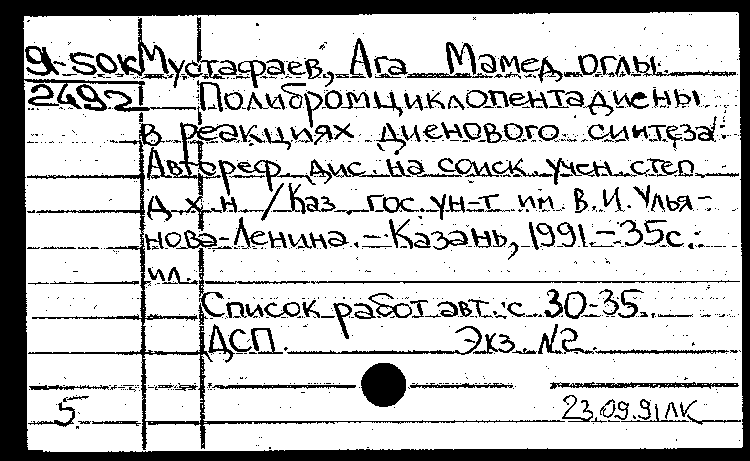 91-5ДК Мустафаев, Ага Мамед оглы
2492 Полибромциклопентадиены
в реакциях диенового синтеза:
Автореф. дис. на соиск. учен. степ.
д.х.н. /Каз. гос. ун-т им. В.И.Улья-
нова-Ленина.-Казань, 1991.-35с.:
ил.
Список работ авт.: с. 30-35.
ДСП. Экз. №2.
5. 23.09.91ЛК